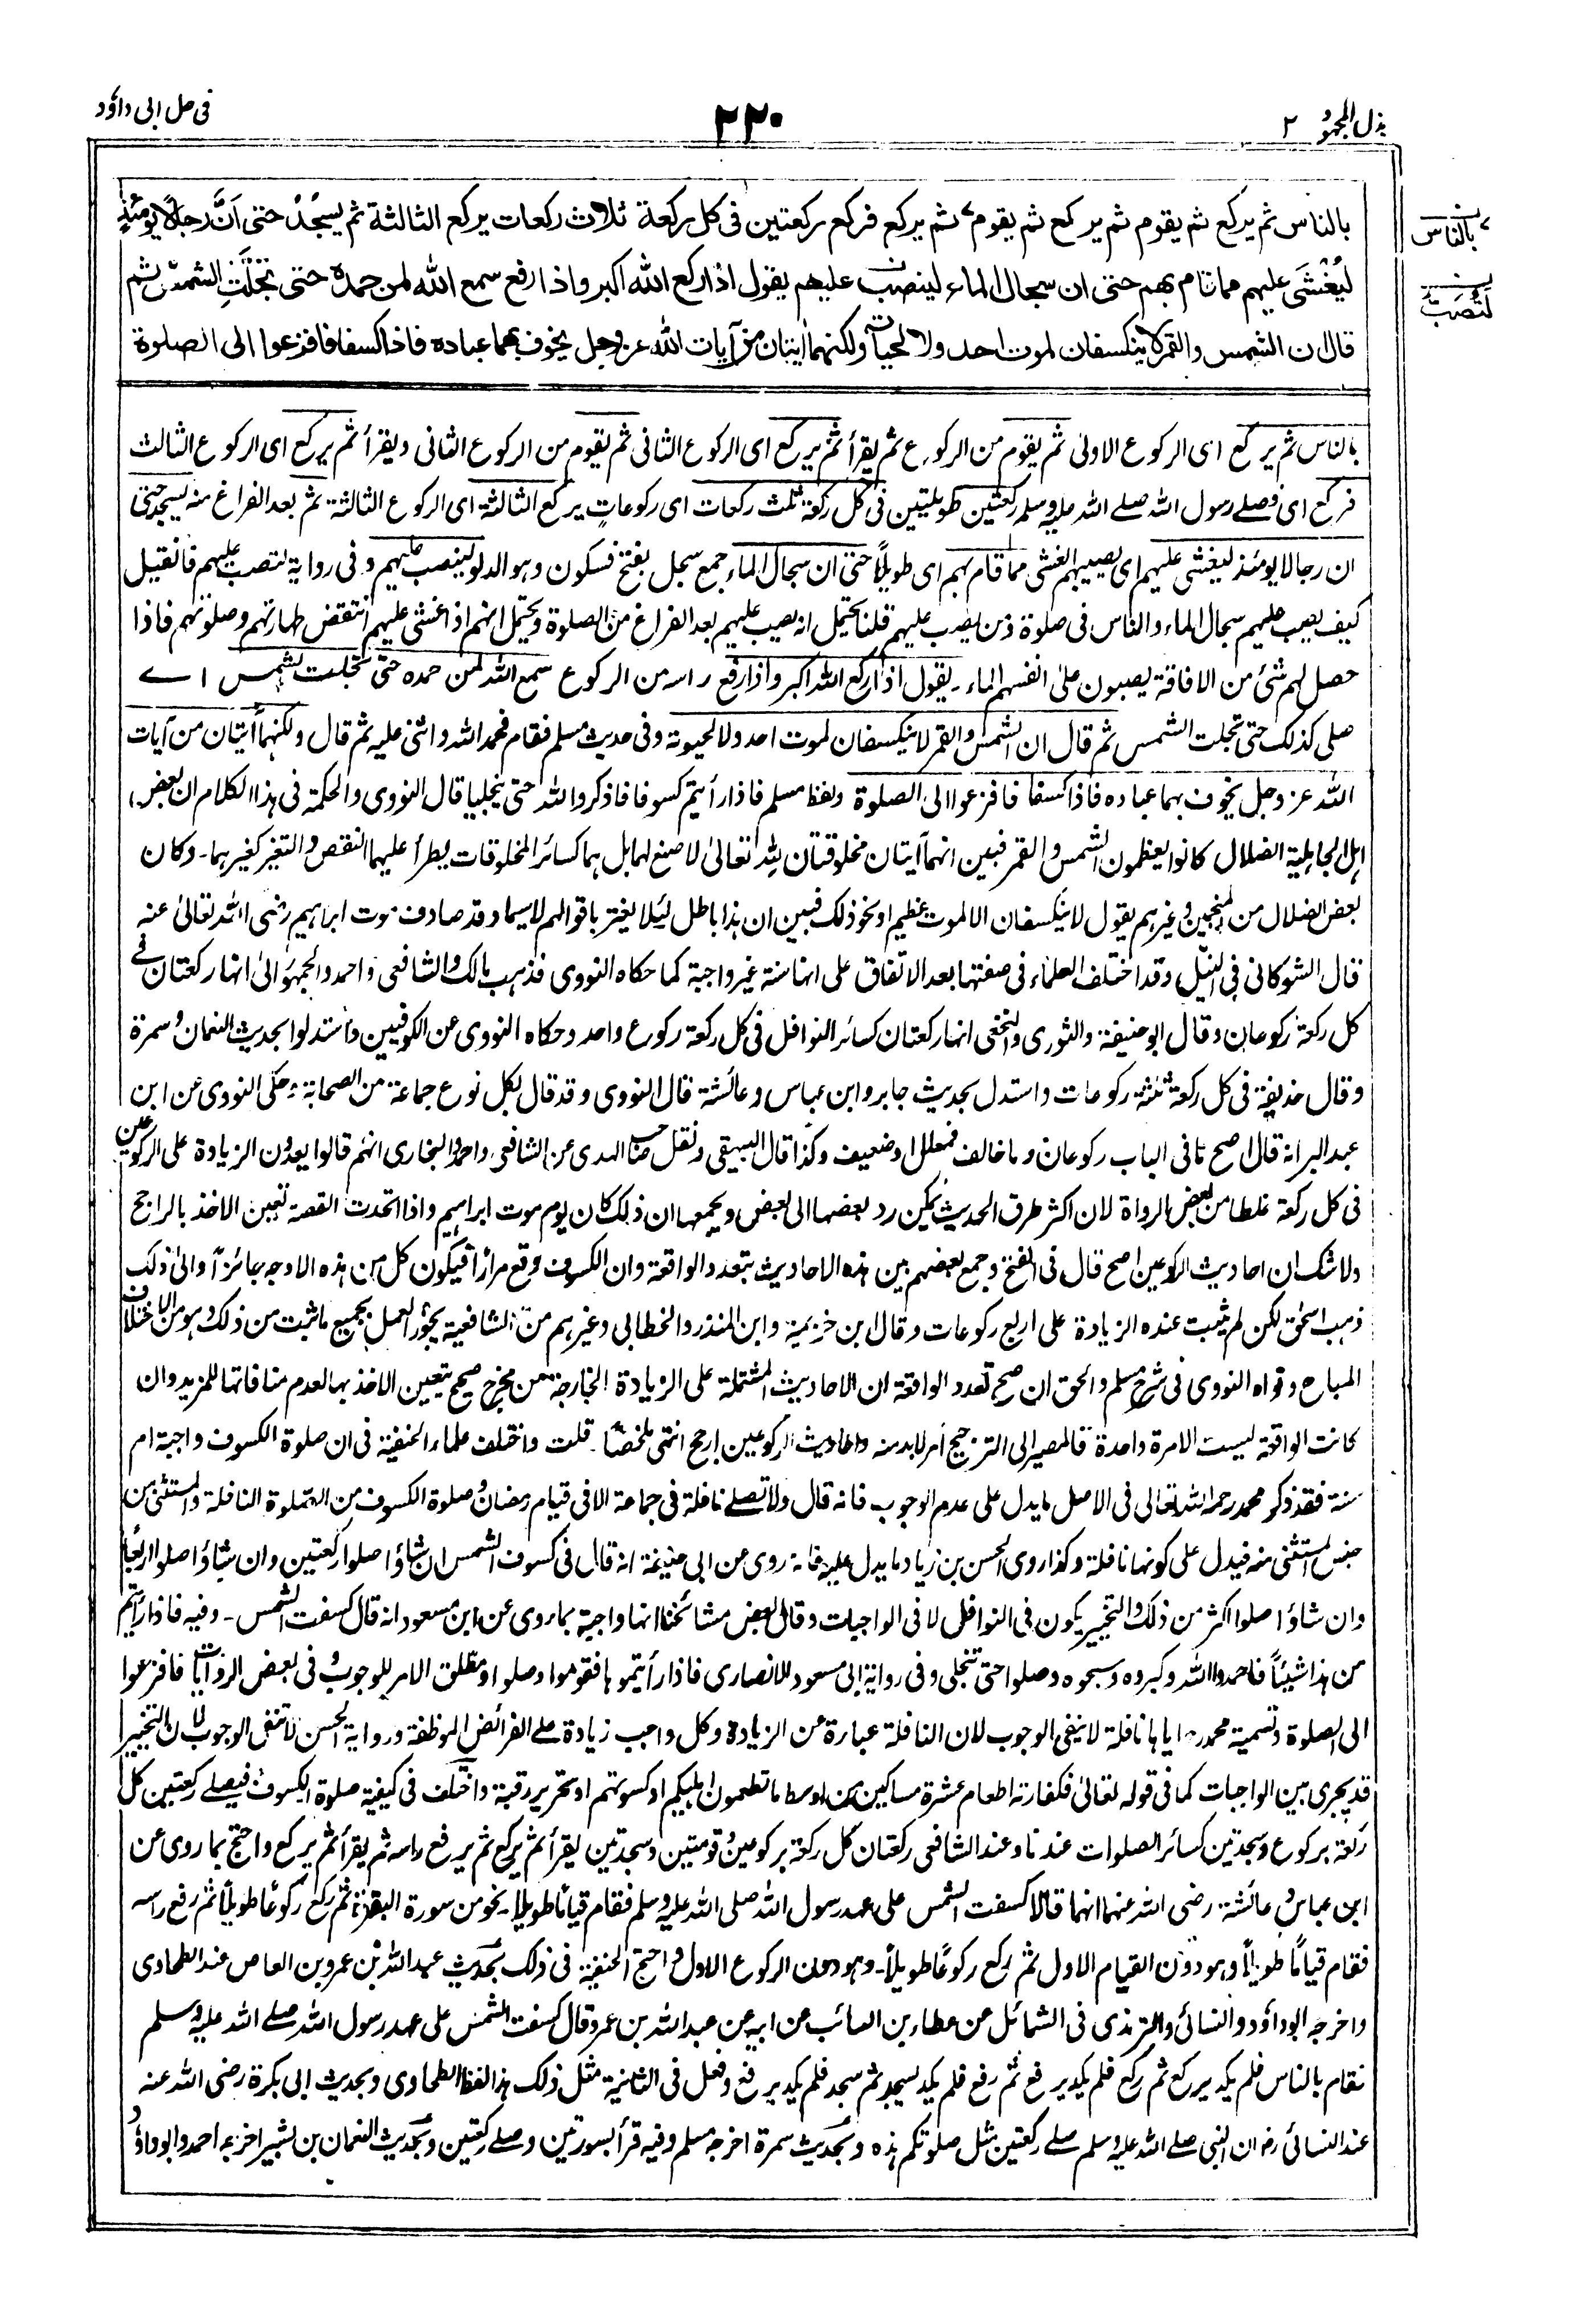 بذل المجهود ٢
٢٢٠
فی حل ابی داؤد
بالناس ثم يركع ثم يقوم ثم يركع ثم يقوم ثم يركع فركع ركعتين فى كل ركعة ثلاث ركعات يركع الثالثة ثم يسجُدُ حتى اَنَّ رجالًا يومئذٍ
ليُغْشَى عليهم مما قام بهم حتى ان سجال الماء لينصب عليهم يقول اذا ركع الله اكبر واذا رفع سمع الله لمن حمده حتى تجلَّتِ الشمس ثم
قال ان الشمس والقمر لا ينكسفان لموت احد ولا لحياته ولكنهما ايتان من آيات الله عز وجل يخوف بهما عباده فاذا كسفا فافزعوا الى الصلوة
بالناس
لتُصَبُّ
بالناس ثم يركع ای الركوع الاولیٰ ثم يقوم من الركوع ثم يقرأ ثم يركع ای الركوع الثانی ثم يقوم من الركوع الثانی ويقرأ ثم يركع ای الركوع الثالث
فركع ای فصلے رسول الله صلے الله عليه وسلم ركعتين طويلتين فی كل ركعة ثلث ركعات ای ركوعاتٍ يركع الثالثة ای الركوع الثالثة ثم بعد الفراغ منه يسجد حتی
ان رجالا يومئذ ليغشی عليهم ای يصيبهم الغشی مما قام بهم ای طويلاً حتی ان سجال الماء جمع سجل بفتح فسكون وهو الدلو لينصب عليهم وفی رواية لتصب عليهم فان قيل
كيف يصب عليهم سجال الماء والناس فی صلوة فمن يصب عليهم قلنا يحتمل انه يصب عليهم بعد الفراغ من الصلوة ويحتمل انهم اذا غشی عليهم انتقض طهارتهم وصلوتهم فاذا
حصل لهم شئ من الافاقة يصبون علیٰ انفسهم الماء ـ يقول اذا ركع الله اكبر واذا رفع راسه من الركوع سمع الله لمن حمده حتی تجلت الشمس اے
صلی كذلك حتی تجلت الشمس ثم قال ان الشمس والقمر لا ينكسفان لموت احد ولا لحيوته وفی حديث مسلم فقام فحمد الله واثنی عليه ثم قال ولكنهما آيتان من آيات
الله عز وجل يخوف بهما عباده فاذا كسفا فافزعوا الی الصلوة ولفظ مسلم فاذا رأيتم كسوفا فاذكروا الله حتی ينجليا قال النووی والحكمة فی هذا الكلام ان بعض
اهل الجاهلية الضلال كانوا يعظمون الشمس والقمر فبين انهما آيتان مخلوقتان لله تعالیٰ لا صنع لهما بل هما كسائر المخلوقات يطرأ عليهما النقص والتغير كغيرهما ـ وكان
بعض الضلال من المنجمين وغيرهم يقول لا ينكسفان الا لموت عظيم او نحو ذلك فبين ان هذا باطل لئلا يغتر باقوالهم لا سيما وقد صادف موت ابراهيم رضی الله تعالیٰ عنه
قال الشوكانی فی النيل وقد اختلف العلماء فی صفتها بعد الاتفاق علی انها سنة غير واجبة كما حكاه النووی فذهب مالك والشافعی واحمد والجمهور الیٰ انها ركعتان فے
كل ركعة ركوعان وقال ابو حنيفة والثوری والنخعی انها ركعتان كسائر النوافل فی كل ركعة ركوع واحد وحكاه النووی عن الكوفيين واستدلوا بحديث النعمان وسمرة
وقال حذيفة فی كل ركعة ثلثة ركوعات واستدل بحديث جابر وابن عباس وعائشة قال النووی وقد قال بكل نوع جماعة من الصحابة وحكی النووی عن ابن
عبد البر انه قال اصح ما فی الباب ركوعان وما خالف فمعلل او ضعيف وكذا قال البيهقی ونقل صاحب الهدی عن الشافعی واحمد والبخاری انهم قالوا يعدون الزيادة علی الركوعين
فی كل ركعة غلطا من بعض الرواة لان اكثر طرق الحديث يمكن رد بعضها الی بعض ويجمعها ان ذلك كان يوم موت ابراهيم واذا اتحدت القصة تعين الاخذ بالراجح
ولا شك ان احاديث الركوعين اصح قال فی الفتح وجمع بعضهم بين هذه الاحاديث بتعدد الواقعة وان الكسوف وقع مراراً فيكون كل من هذه الاوجه جائزاً والیٰ ذلك
ذهب اسحٰق لكن لم يثبت عنده الزيادة علی اربع ركوعات وقال ابن خزيمة وابن المنذر والخطابی وغيرهم من الشافعية يجوز العمل بجميع ما ثبت من ذلك وهو من الاختلاف
المباح وقواه النووی فی شرح مسلم والحق ان صح تعدد الواقعة ان الاحاديث المشتملة علی الزيادة الخارجة من مخرج صحيح يتعين الاخذ بها لعدم منافاتها للمزيد وان
كانت الواقعة ليست الا مرة واحدة فالمصير الی الترجيح امر لا بد منه واحاديث الركوعين ارجح انتهی ملخصًا ـ قلت واختلف علماء الحنفية فی ان صلوة الكسوف واجبة ام
سنة فقد ذكر محمد رحمه الله تعالی فی الاصل ما يدل علی عدم الوجوب فانه قال ولا تصلے نافلة فی جماعة الا فی قيام رمضان وصلوة الكسوف من الصلوة النافلة والمستثنی من
جنس المستثنی منه فيدل علی كونها نافلة وكذا روی الحسن بن زياد ما يدل عليه فانه روی عن ابی حنيفة انه قال فی كسوف الشمس ان شاؤا صلوا ركعتين وان شاؤا صلوا اربعًا
وان شاؤا صلوا اكثر من ذلك والتخيير يكون فی النوافل لا فی الواجبات وقال بعض مشائخنا انها واجبة بما روی عن ابن مسعود انه قال كسفت الشمس ـ وفيه فاذا رأيتم
من هذا شيئًا فاحمدوا الله وكبروه وسبحوه وصلوا حتی تنجلی وفی رواية ابی مسعود الانصاری فاذا رأيتموها فقوموا وصلوا ومطلق الامر للوجوب وفی بعض الروايات فافزعوا
الی الصلوة وتسمية محمد اياها نافلة لا ينفی الوجوب لان النافلة عبارة عن الزيادة وكل واجب زيادة علے الفرائض الموظفة ورواية الحسن لا تنفی الوجوب لان التخيير
قد يجری بين الواجبات كما فی قوله تعالیٰ فكفارته اطعام عشرة مساكين من اوسط ما تطعمون اهليكم او كسوتهم او تحرير رقبة واختلف فی كيفية صلوة الكسوف فيصلے ركعتين كل
ركعة بركوع وسجدتين كسائر الصلوات عندنا وعند الشافعی ركعتان كل ركعة بركوعين وقومتين وسجدتين يقرأ ثم يركع ثم يرفع راسه ثم يقرأ ثم يركع واحتج بما روی عن
ابن عباس وعائشة رضی الله عنهما انهما قالا كسفت الشمس علی عهد رسول الله صلی الله عليه وسلم فقام قيامًا طويلاً ـ نحو من سورة البقرة ثم ركع ركوعًا طويلاً ثم رفع راسه
فقام قيامًا طويلاً وهو دون القيام الاول ثم ركع ركوعًا طويلاً ـ وهو دون الركوع الاول واحتج الحنفية فی ذلك بحديث عبد الله بن عمرو بن العاص عند الطحاوی
واخرجه ابو داؤد والنسائی والترمذی فی الشمائل عن عطاء بن السائب عن ابيه عن عبد الله بن عمرو قال كسفت الشمس علی عهد رسول الله صلے الله عليه وسلم
فقام بالناس فلم يكد يركع ثم ركع فلم يكد يرفع ثم رفع فلم يكد يسجد ثم سجد فلم يكد يرفع وفعل فی الثانية مثل ذلك هذا لفظ الطحاوی وبحديث ابی بكرة رضی الله عنه
عند النسائی ان النبی صلے الله عليه وسلم صلے ركعتين مثل صلوتكم هذه وبحديث سمرة اخرجه مسلم وفيه قرأ بسورتين وصلے ركعتين وبحديث النعمان بن بشير اخرجه احمد وابو داؤد